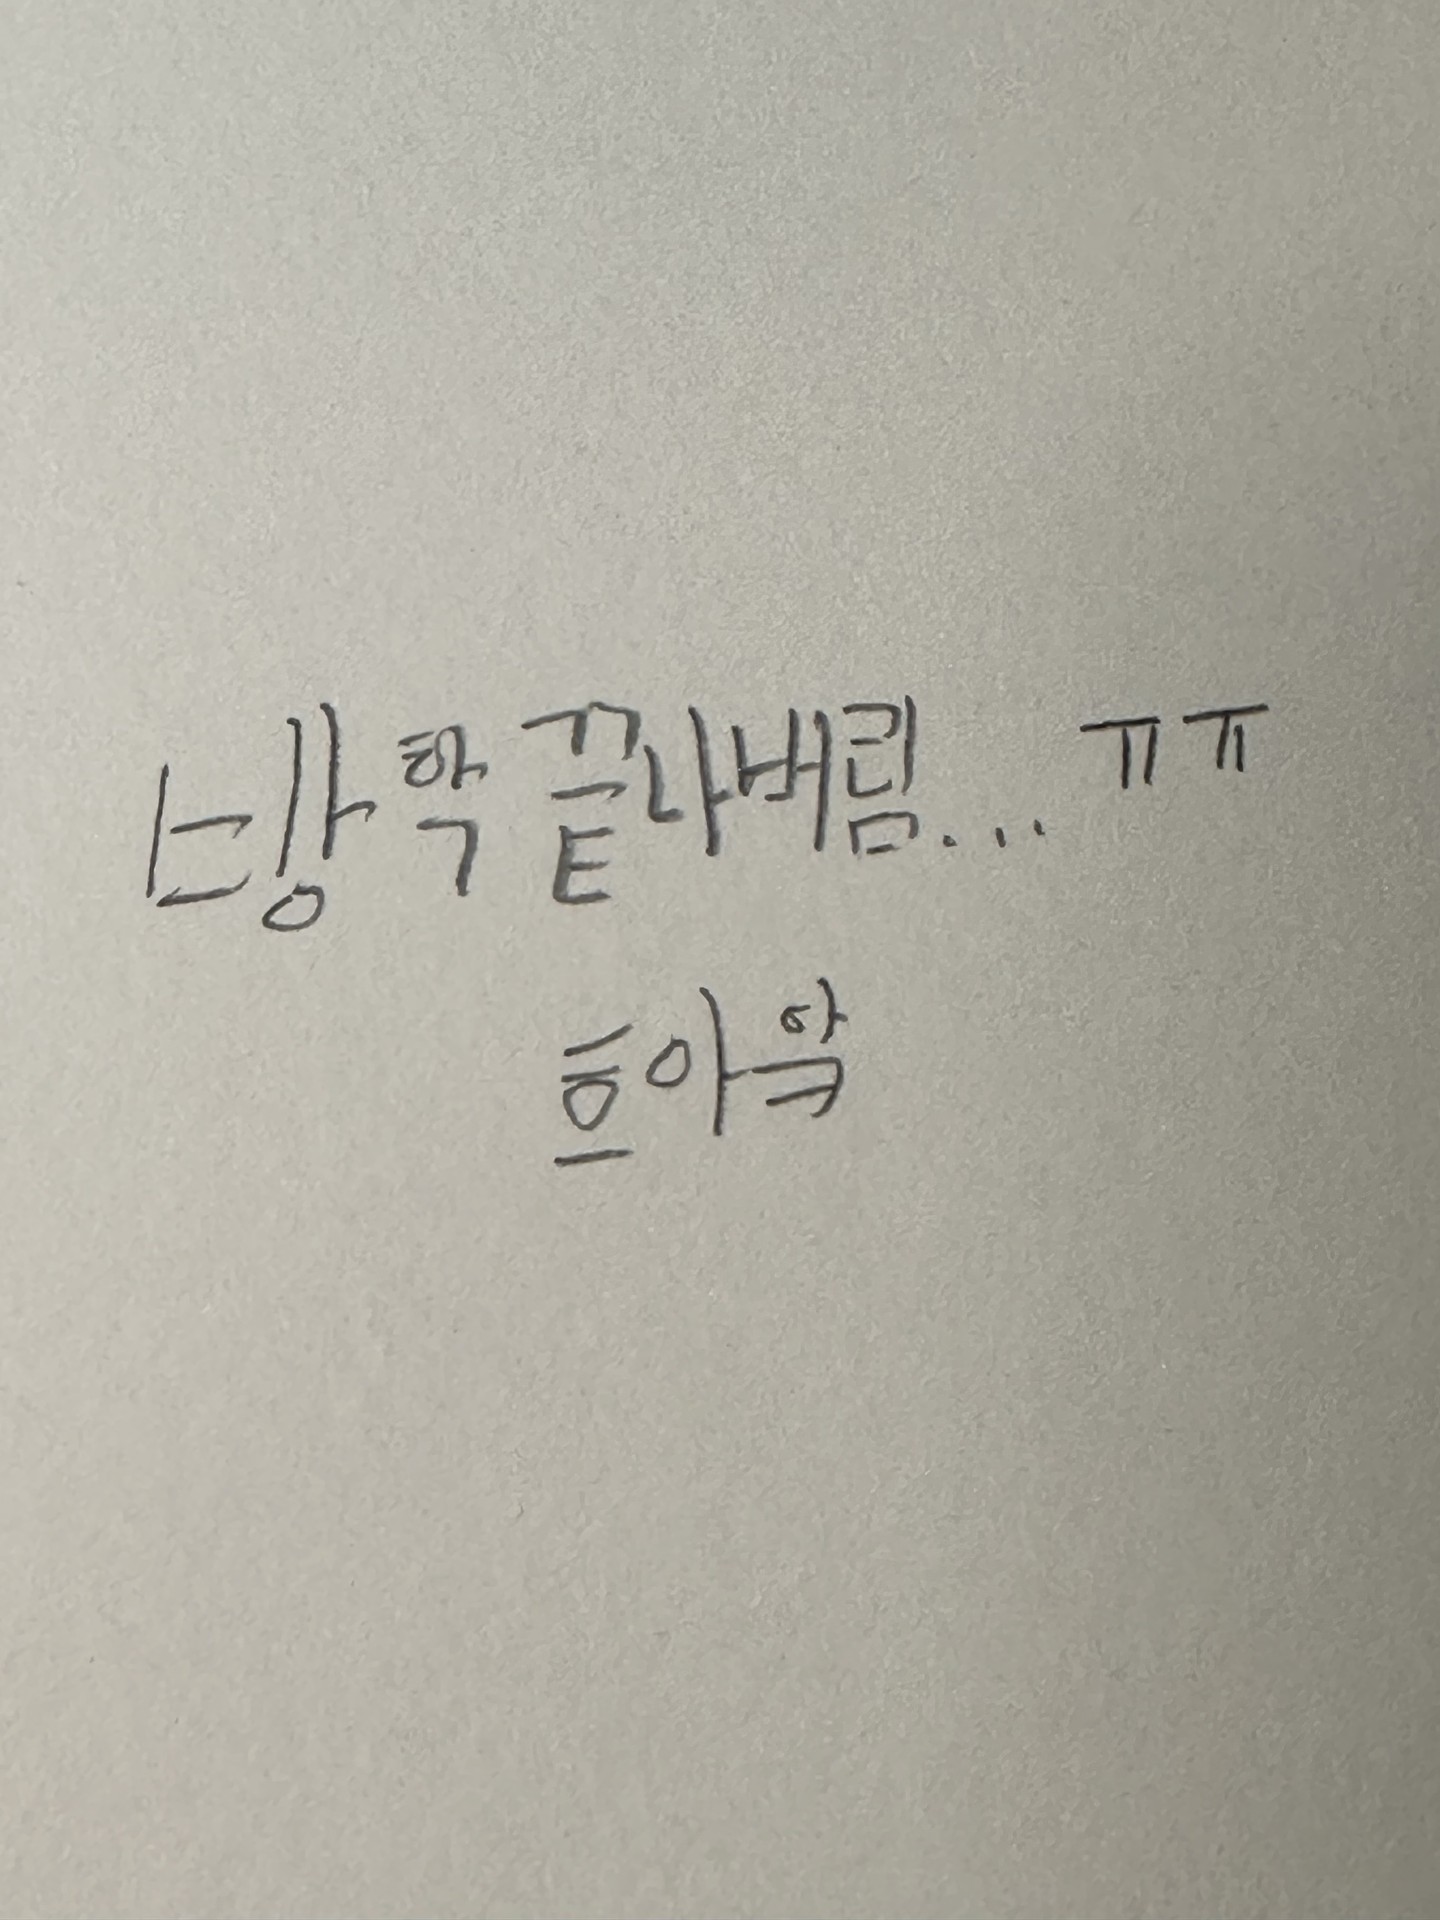 방학 끝나버림... ㅠㅠ
흐아앜